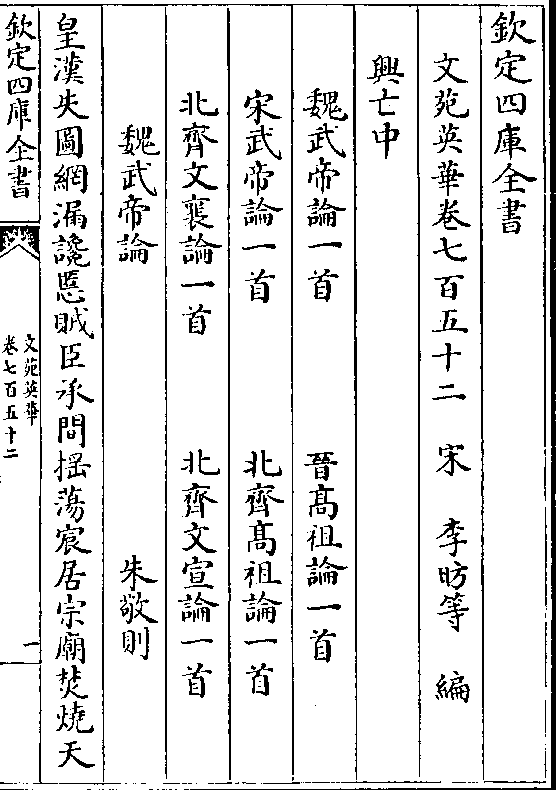 欽定四庫全書
文苑英華卷七百五十二　宋　李昉等　編
興亡中
魏武帝論一首　晉髙祖論一首
宋武帝論一首　北齊髙祖論一首
北齊文襄論一首　北齊文宣論一首
魏武帝論　朱敬則
皇漢失圖網漏讒慝賊臣承間揺蕩宸居宗廟焚燒天
欽定四庫全書
文苑英華
卷七百五十二
一